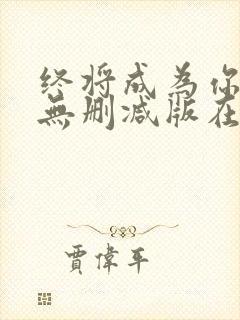 终将成为你
無删减版在
賈偉平